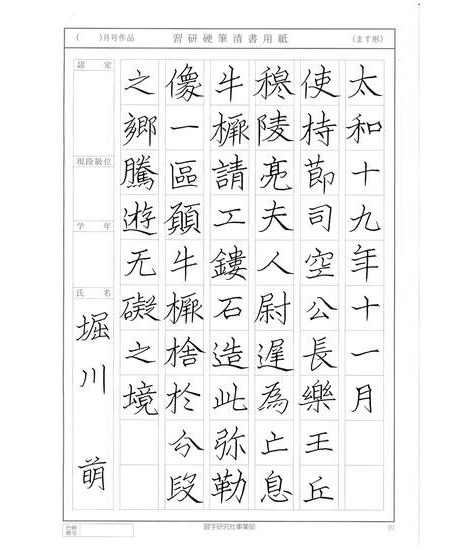 ( )月号作品 習研硬筆清書用紙 (ます形)
太和十九年十一月
使持節司空公長樂王丘
穆陵亮夫人尉遲為亡息
牛橛請工鏤石造此弥勒
像一區願牛橛捨於兮段
之鄉騰遊无礙之境
認定
現段級位
学年
氏名
堀川 萌
習字研究社事業部